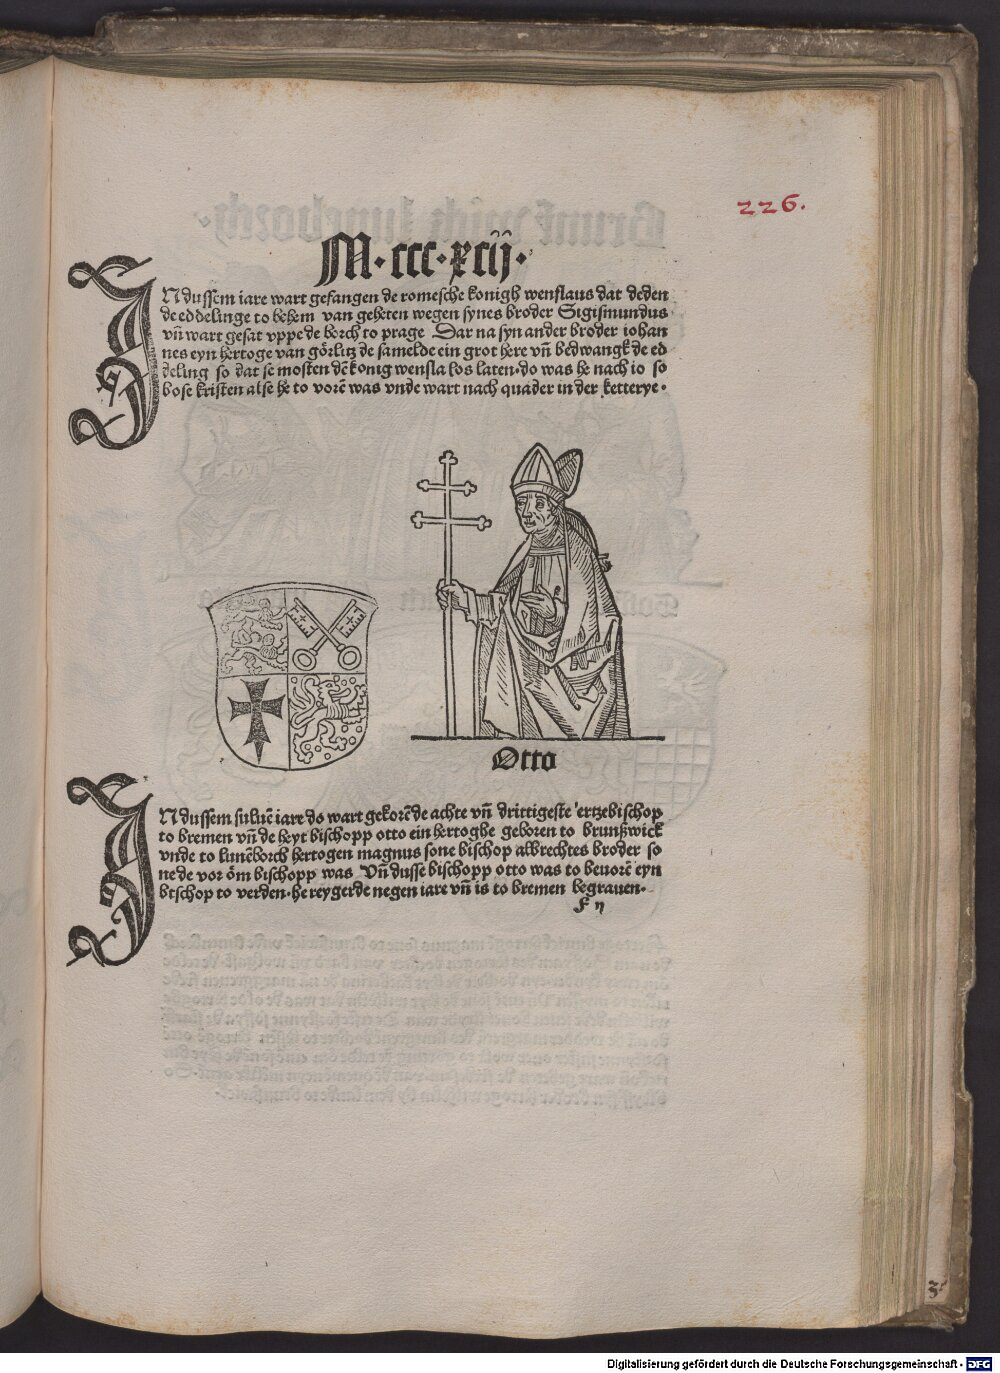 226.
M·ccc·xcij·
INdussem iare wart gefangen de romesche konigh wenslaus dat deden
de eddelinge to behem van geheten wegen synes broder Sigismundus
vñ wart gesat vppe de borch to prage Dar na syn ander broder iohan
nes eyn hertoge van görlitz de samelde ein grot here vñ bedwangk de ed
deling so dat se mosten dē konig wensla los laten·do was he nach io so
bose kristen alse he to vorē was vnde wart nach quader in der ketterye·
Otto
INdussem suluē iare do wart gekorē de achte vñ drittigeste ertzebischop
to bremen vñ de heyt bischopp otto ein hertoghe geboren to brunßwick
vnde to lunēborch hertogen magnus sone bischop albrechtes broder so
ne de vor öm bischopp was Vñ dusse bischopp otto was to beuorē eyn
bischop to verden·he reygerde negen iare vñ is to bremen begrauen·
Digitalisierung gefördert durch die Deutsche Forschungsgemeinschaft - DFG